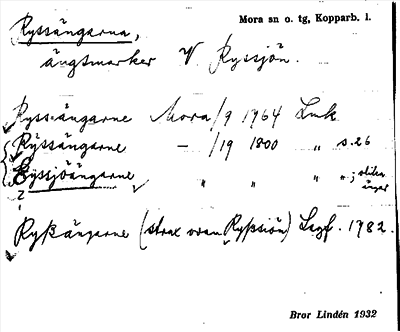 Ryssängarna,
Mora sn o. tg, Kopparb. l.
ängsmarker V. Ryssjön.
Ryssängarne Mora/9 1764 Lmk
Ryssängarne — /19 1800 „ s.26
Ryssjöängarne „ „ „ „; olika ängar
?
Ryßängarne (strax ovan Ryßsiön) Lagf. 1782.
Bror Lindén 1932